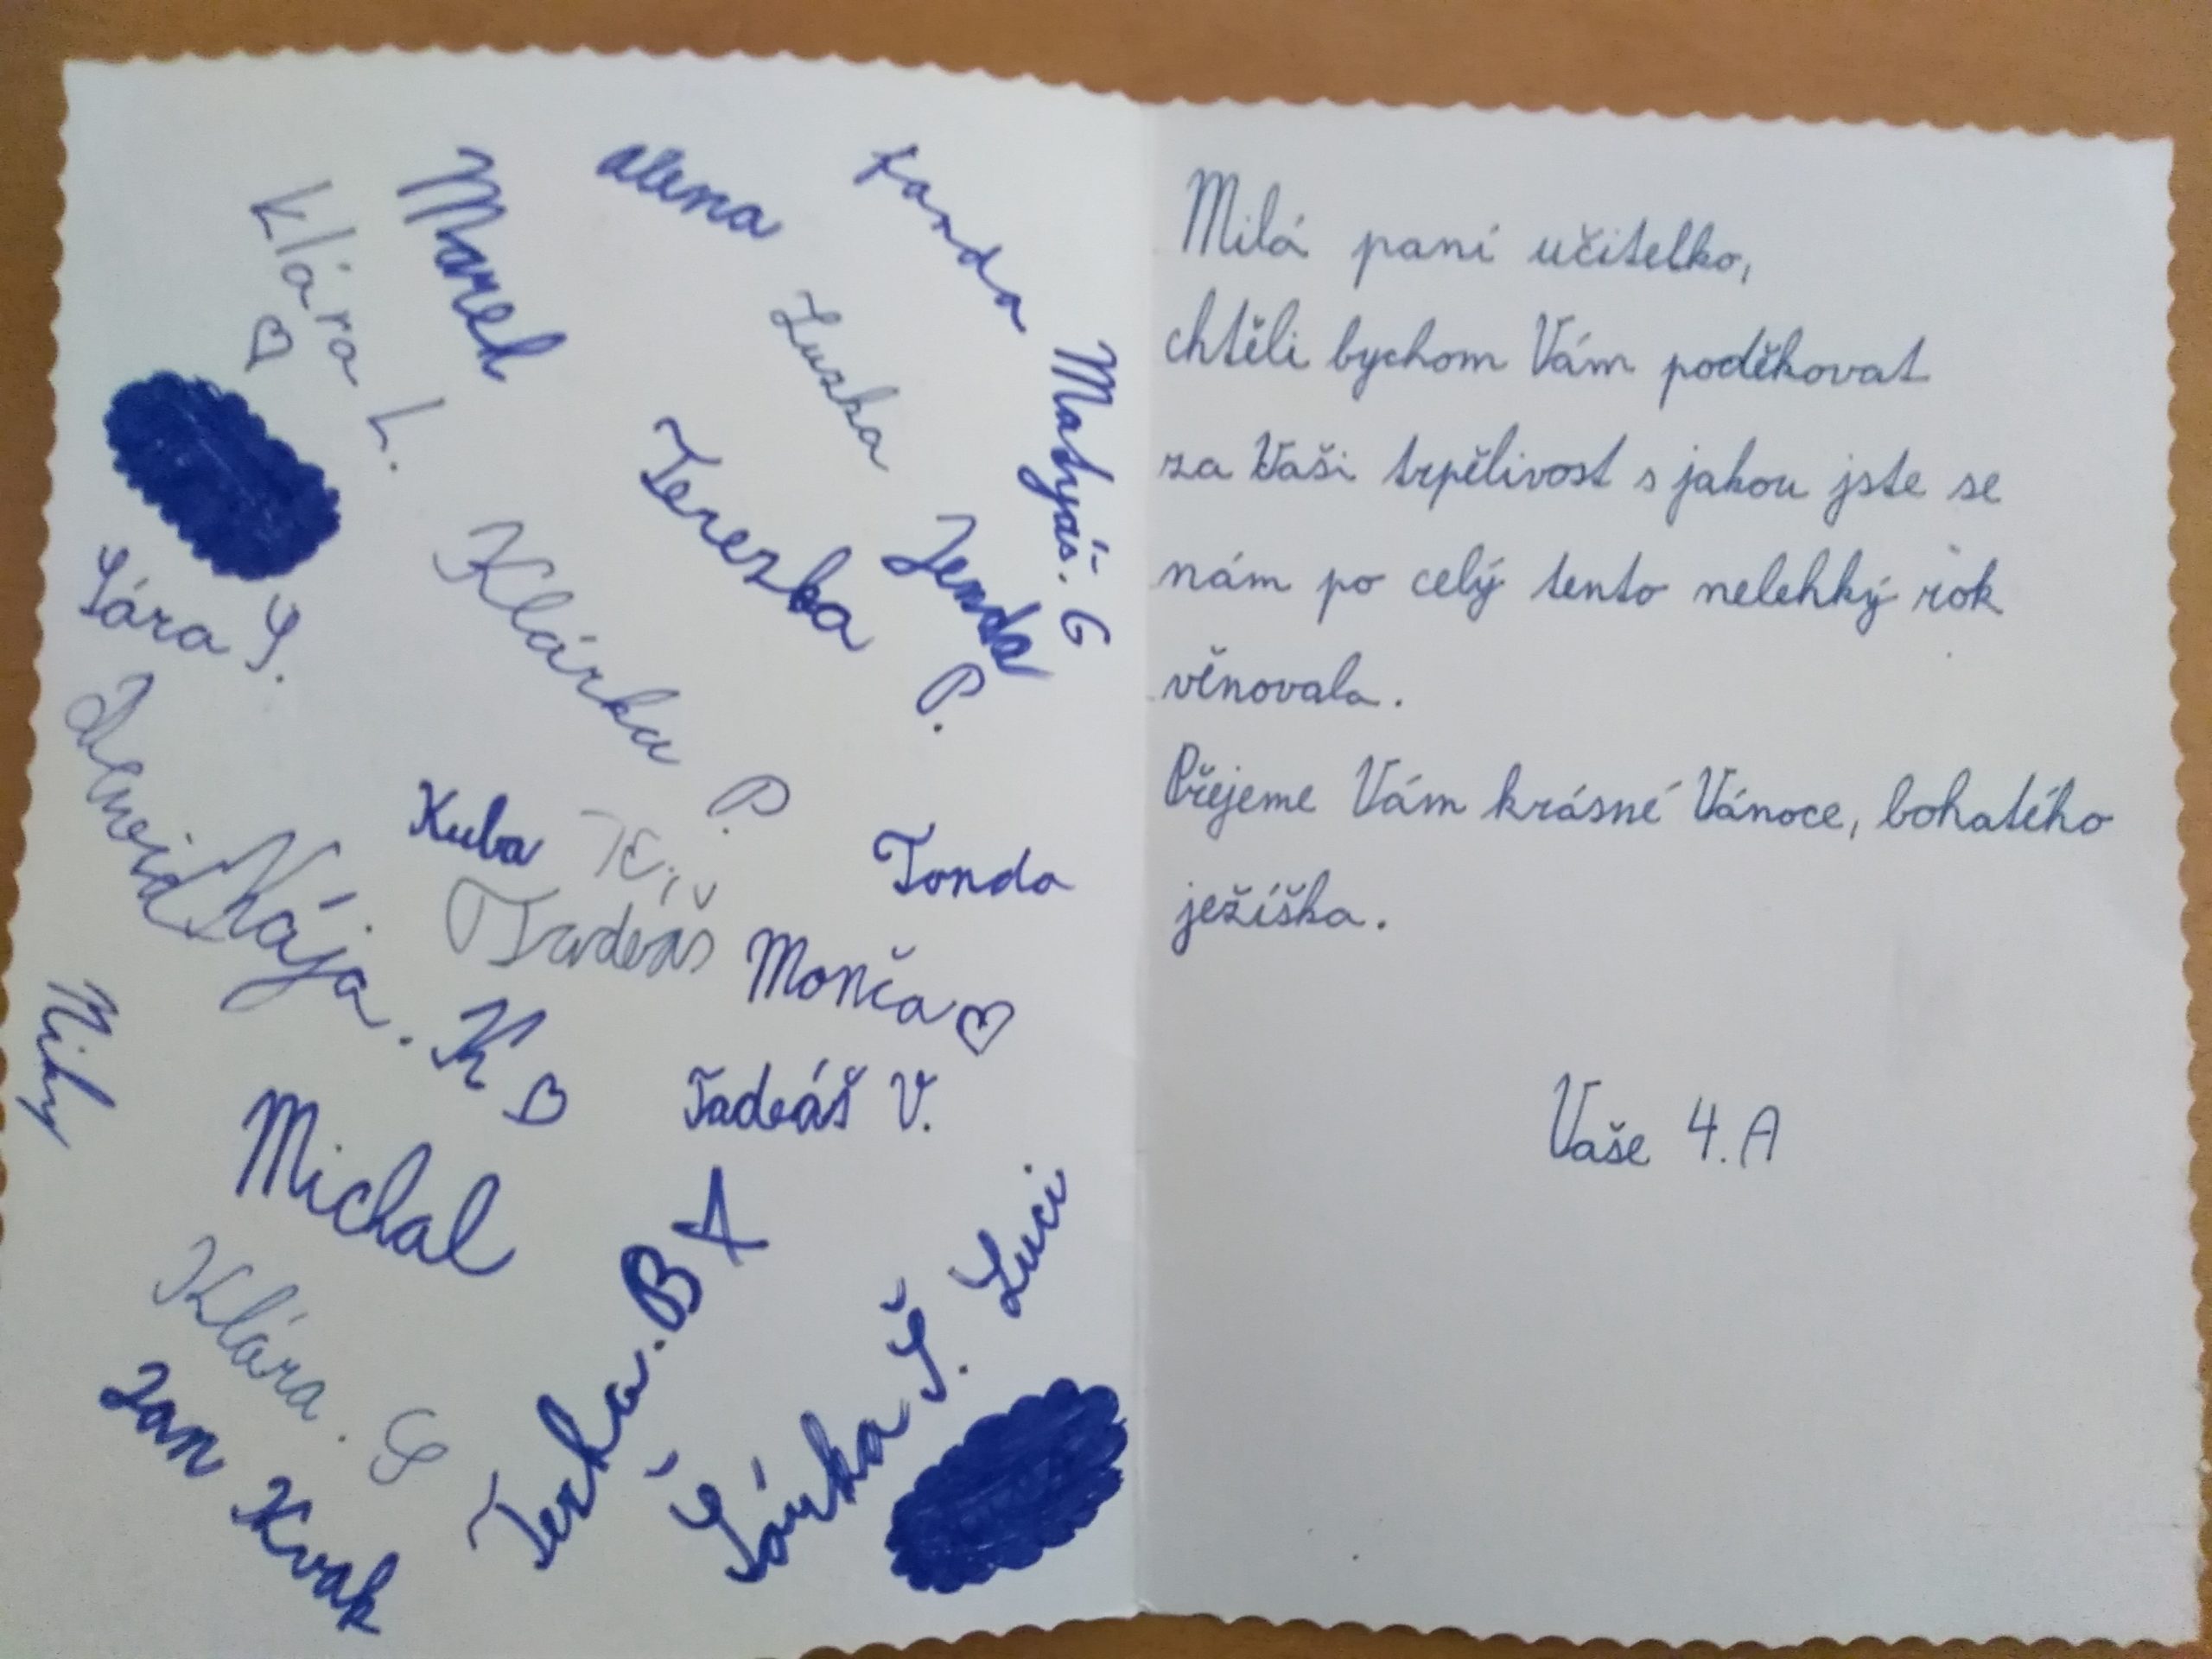 Klára L.
Marek
Alena
Fanda
Luzka
Matyáš. G
Terezka
Jenda P.
Sára S.
Klárka P.
David
Kája. K
Kuba
Tonda
Tadeáš
Monča
Niky
Tadeáš V.
Michal
Klára. S
Jan Kvak
Terka. B
Šárka Š.
Luci
Milá paní učitelko,
chtěli bychom Vám poděkovat
za Vaši trpělivost s jakou jste se
nám po celý tento nelehký rok
věnovala.
Přejeme Vám krásné Vánoce, bohatého
ježíška.
Vaše 4.A